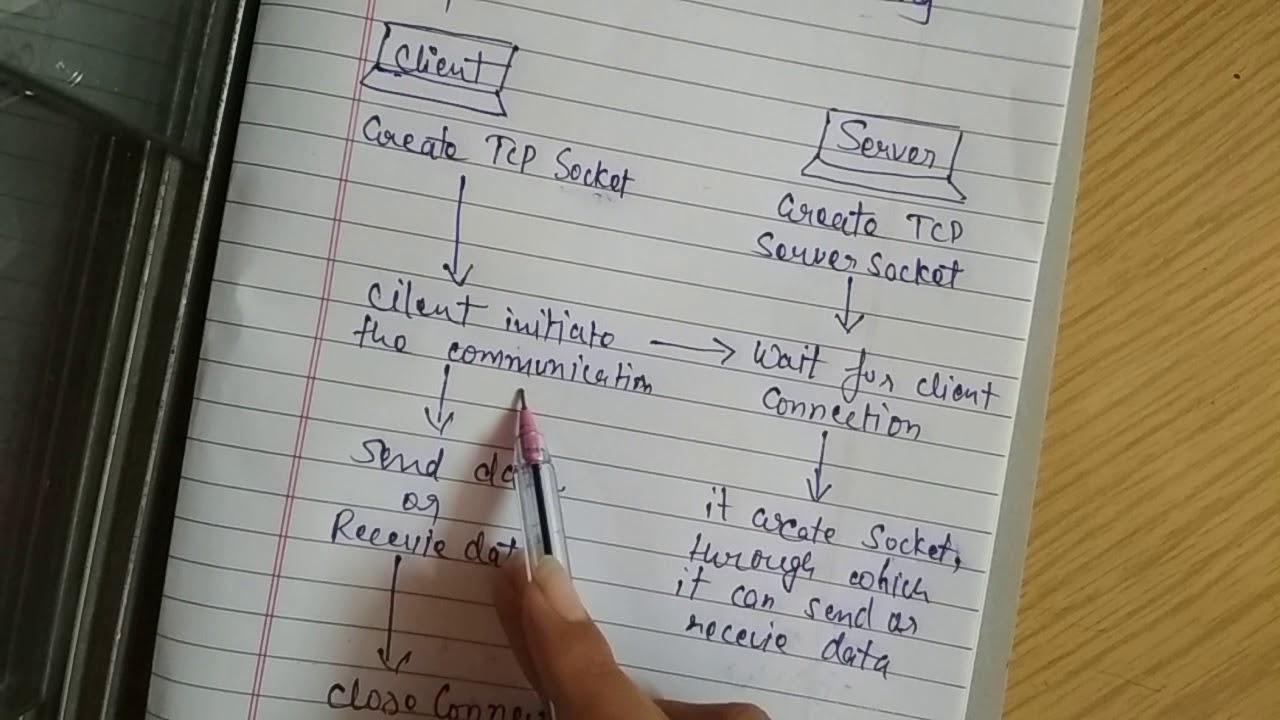 Client
Create TCP Socket
Cilent initiate
the communication
Send
or
Recevie
Close
Server
Create TCP
Server Socket
Wait for client
Connection
it create Socket,
through which
it can send or
recevie data